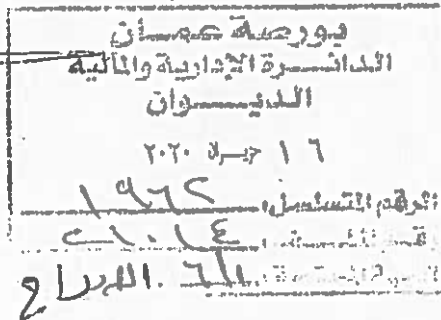 بورصة عمان
الدائـــرة الإدارية والمالية
الديـــوان
١٦ حزـ ٢٠٢٠
الرقم المتسلسل ١٩٦٢
٢١٠١٤
الجهة المختصة